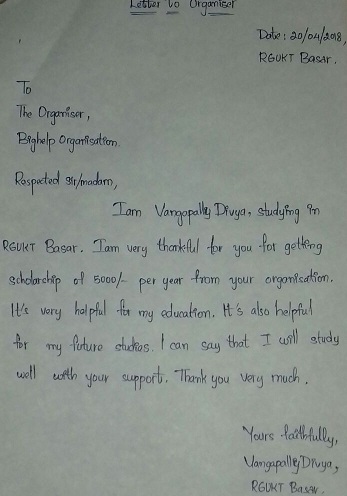 Letter to Organiser
Date: 20/04/2018,
RGUKT Basar.
To
The Organiser,
Bighelp Organisation.
Respected sir/madam,
Iam Vangapally Divya, studying in
RGUKT Basar. Iam very thankful for you for getting
scholarship of 5000/- per year from your organisation.
It's very helpful for my education. It's also helpful
for my future studies. I can say that I will study
well with your support. Thank you very much.
Yours faithfully,
Vangapally Divya,
RGUKT Basar.